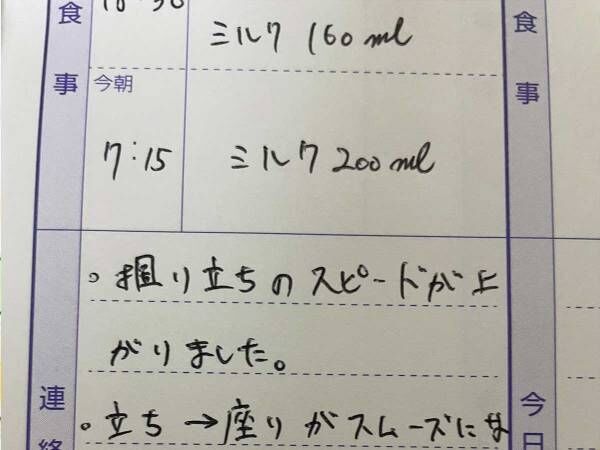 食事
ミルク 160ml
今朝
7:15 ミルク 200ml
連絡
。掴り立ちのスピードが上
がりました。
。立ち→座りがスムーズにな
食事
今日